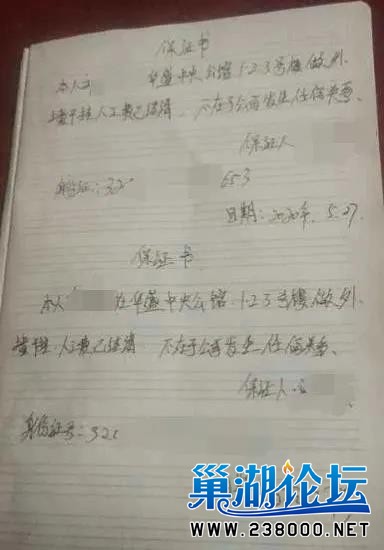 保证书
本人 华益中央公馆1-2-3号楼做外
墙干挂人工费已结清、不在于公司发生任何关系、
保证人
身份证:32
653
日期:2020年.5.27.
保证书
本人 在华益中央公馆1-2-3号楼做外
墙挂人工费已结清 不在于公司发生任何关系、
保证人:
身份证号:32
巢湖论坛
www.238000.net